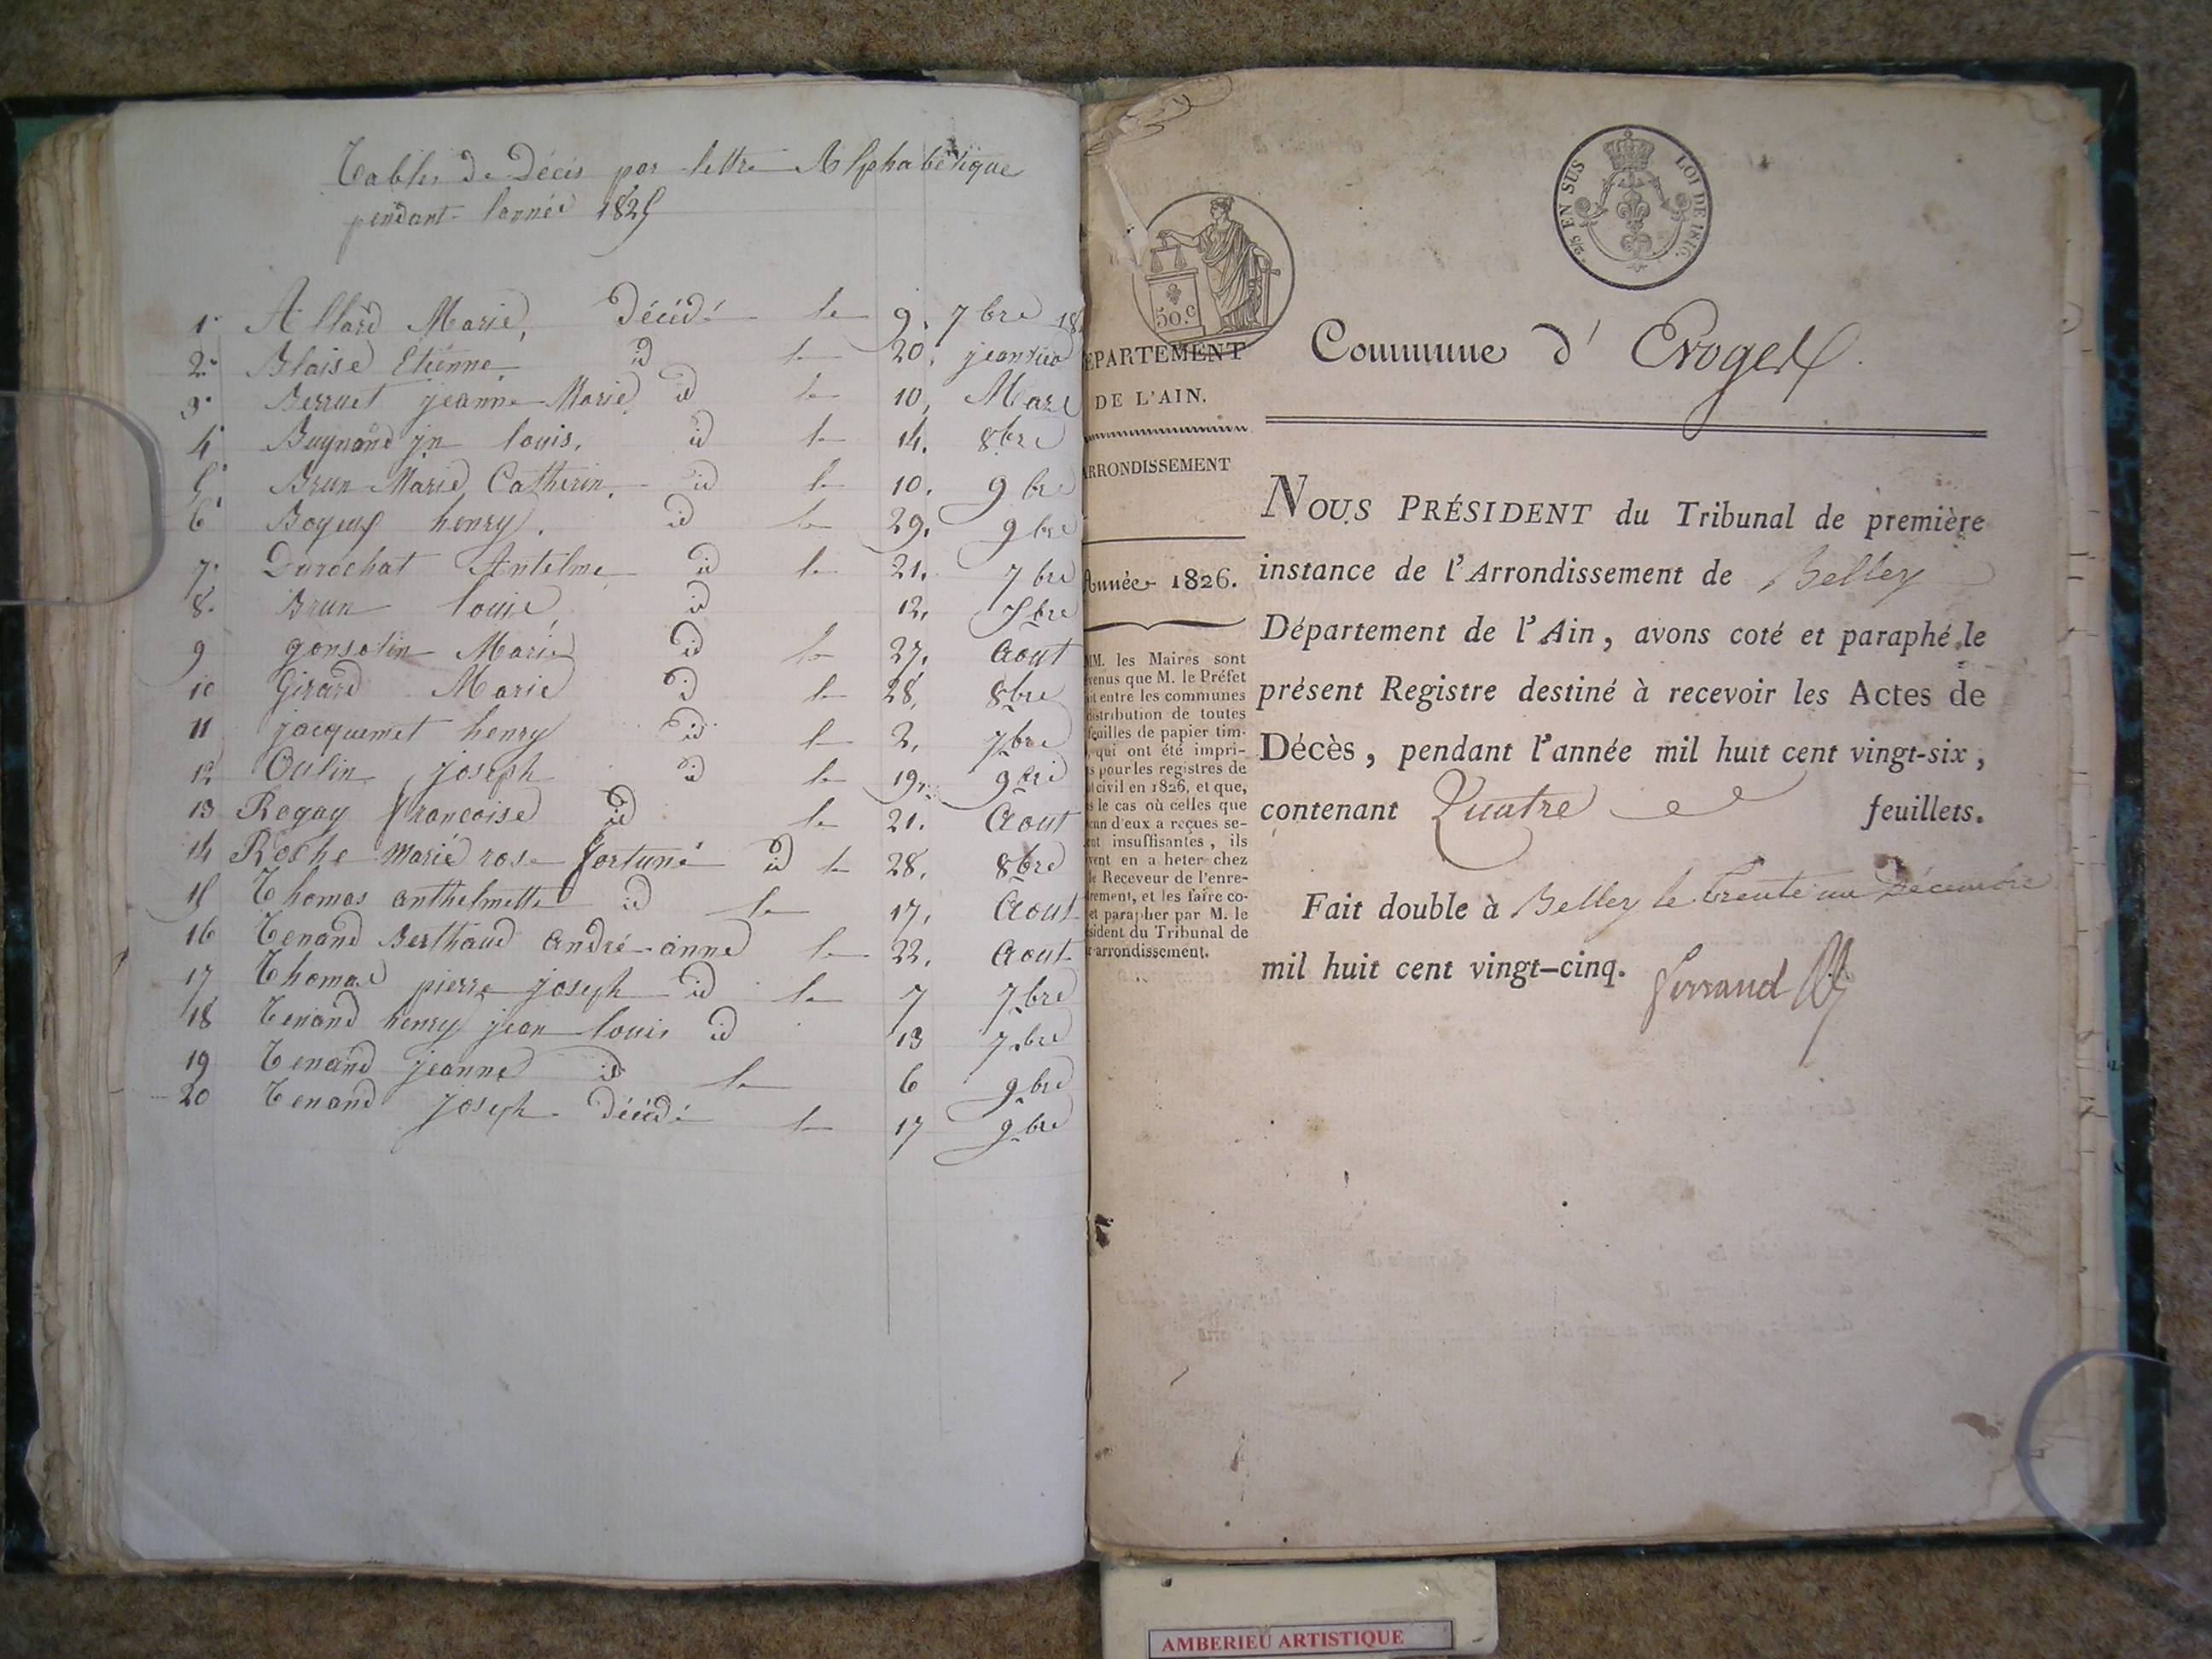 Tables de Décès par lettre Alphabétique
pendant l'année 1825
1. Allard Marie, Décédé le 9. 7bre 18
2. Blaise Etienne id le 20. jeanvier
3. Berruet jeanne Marie id le 10. Mars
4. Buynand jn louis. id le 14. 8bre
5. Brun Marie Catherin. id le 10. 9bre
6. henry. id le 29. 9bre
7. Durochat Antelme id le 21. 7bre
8. Brun louise id 12. 7bre
9 gonsolin Marie id le 27. Aout
10 Girard Marie id le 28. 8bre
11 jacquemet henry id le 2. 7bre
12 Oulin joseph id le 19. 9bre
13 Rogay françoise id le 21. Aout
14 Roche Marie rose fortuné id le 28. 8bre
15 Thomas anthelmette id le 17. Aout
16 Tenand Berthaud andré anne le 22. Aout
17 Thomas pierre joseph id le 7 7bre
18 Tenand henry jean louis id 13 7bre
19 Tenand jeanne id le 6 9bre
20 Tenand joseph Décédé le 17 9bre
2/5 EN SUS LOI DE 1816.
50.c
EPARTEMENT
DE L'AIN.
ARRONDISSEMENT
Année 1826.
MM. les Maires sont
venus que M. le Préfet
it entre les communes
distribution de toutes
feuilles de papier tim-
, qui ont été impri-
s pour les registres de
civil en 1826, et que,
s le cas où celles que
cun d'eux a reçues se-
nt insuffisantes, ils
vent en a heter chez
le Receveur de l'enre-
trement, et les faire co-
et parapher par M. le
sident du Tribunal de
r arrondissement.
Commune d'
NOUS PRÉSIDENT du Tribunal de première
instance de l'Arrondissement de Belley
Département de l'Ain, avons coté et paraphé le
présent Registre destiné à recevoir les Actes de
Décès, pendant l'année mil huit cent vingt-six,
contenant Quatre feuillets.
Fait double à Belley le trente un Décembre
mil huit cent vingt-cinq.
AMBERIEU ARTISTIQUE